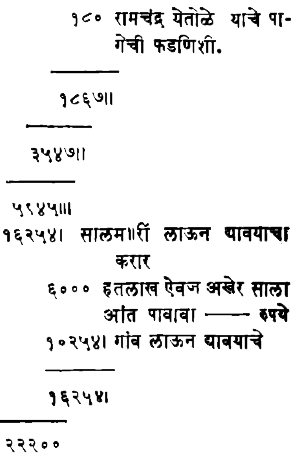 १८० रामचंद्र येतोळे याचे पा-
गेची फडणिशी.
१८६७॥
३५४७॥
५९४५॥।
१६२५४। सालम॥रीं लाऊन द्यावयाचा
करार
६००० हतलाख ऐवज अखेर साला
आंत पावावा —— रुपये
१०२५४। गांव लाऊन द्यावयाचे
१६२५४।
२२२००